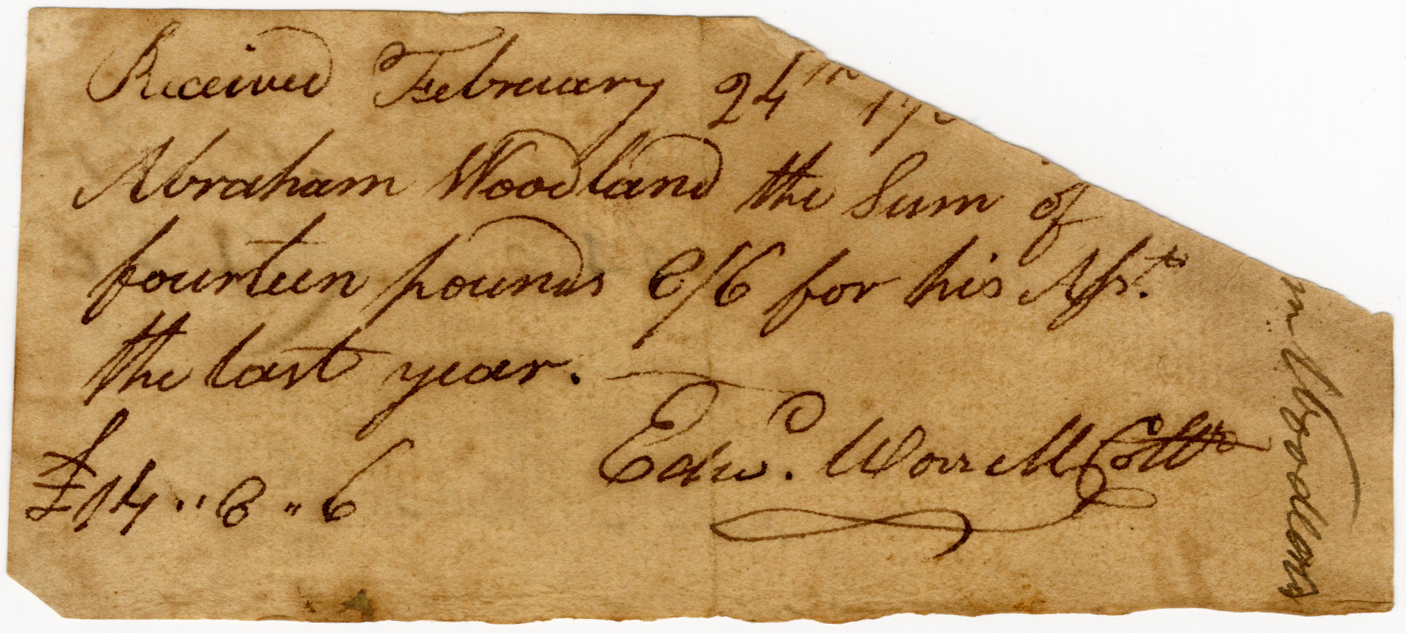 Received February 24th 17
Abraham Woodland the Sum of
fourteen pounds 8/6 for his Asst.
the last year.
Edwd. Worrell Collr
£14 „ 8 „ 6
m Woodland